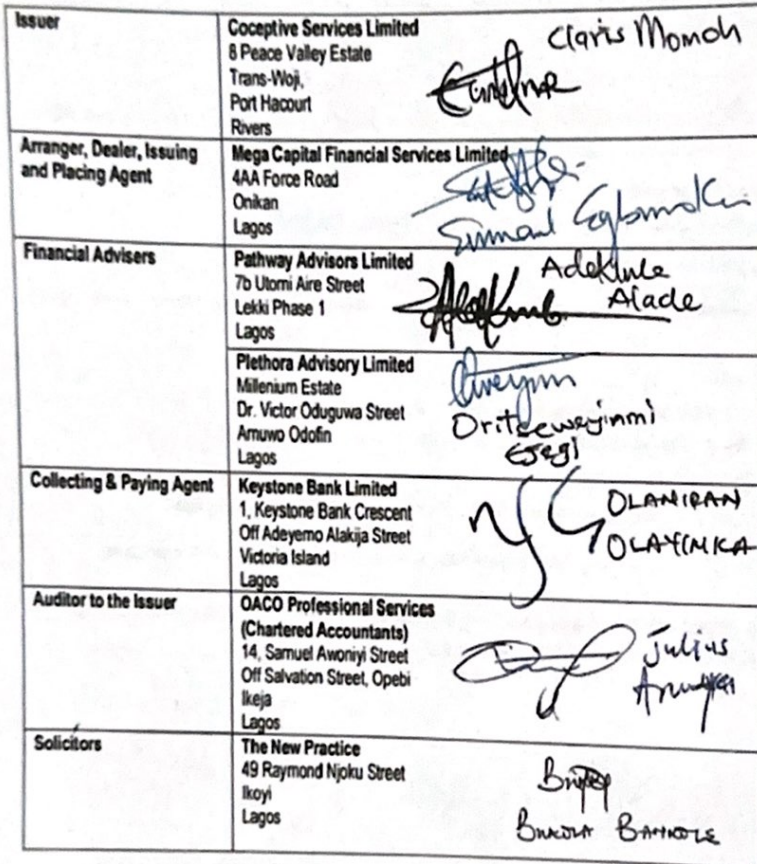 Issuer
Coceptive Services Limited
8 Peace Valley Estate
Trans-Woji,
Port Hacourt
Rivers
Claris Momoh
Arranger, Dealer, Issuing
and Placing Agent
Mega Capital Financial Services Limited
4AA Force Road
Onikan
Lagos
Financial Advisers
Pathway Advisors Limited
7b Utomi Aire Street
Lekki Phase 1
Lagos
Adekunle
Alade
Plethora Advisory Limited
Millenium Estate
Dr. Victor Oduguwa Street
Amuwo Odofin
Lagos
Oritseweyinmi
Collecting & Paying Agent
Keystone Bank Limited
1, Keystone Bank Crescent
Off Adeyemo Alakija Street
Victoria Island
Lagos
OLANIRAN
OLAYINKA
Auditor to the Issuer
OACO Professional Services
(Chartered Accountants)
14, Samuel Awoniyi Street
Off Salvation Street, Opebi
Ikeja
Lagos
Julius
Solicitors
The New Practice
49 Raymond Njoku Street
Ikoyi
Lagos